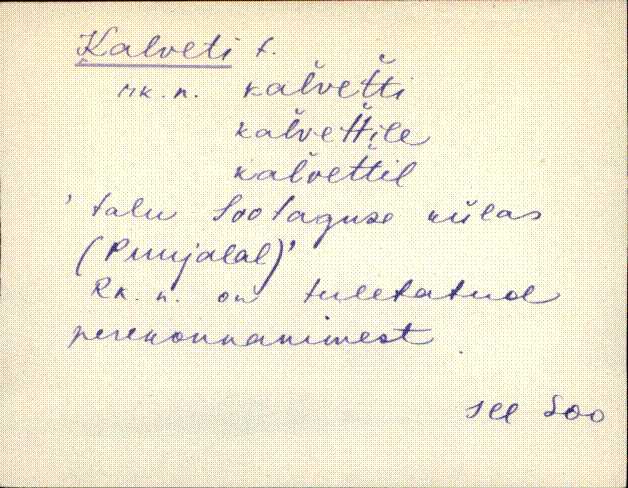 Kalveti t.
rk. n. kaĺvetti
kaĺvettile
kaĺvettil
' talu Sootaguse külas
(Puujalal)'
Rk. n. on tuletatud
perekonnanimest
See Soo